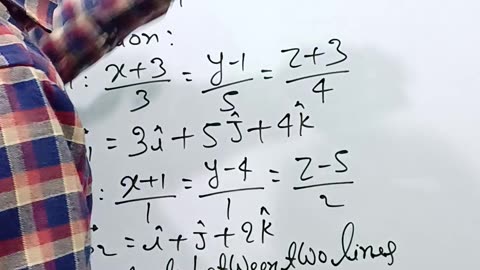 ion:
: x+3/3 = y-1/5 = z+3/4
= 3î + 5ĵ + 4k̂
: x+1/1 = y-4/1 = z-5/2
2 = î + ĵ + 2k̂
between two lines